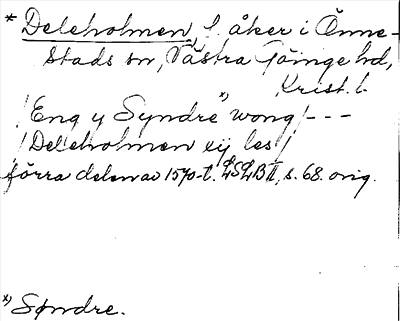 * Deleholmen, f. åker i Önne-
stads sn, Västra Göinge hd,
Krist. l.
/Eng y Syndre x) wong/ - - -
/Deleholmen eÿ les/
förra delen av 1570-t. LSLB II, s. 68. orig.
x) Syndre.